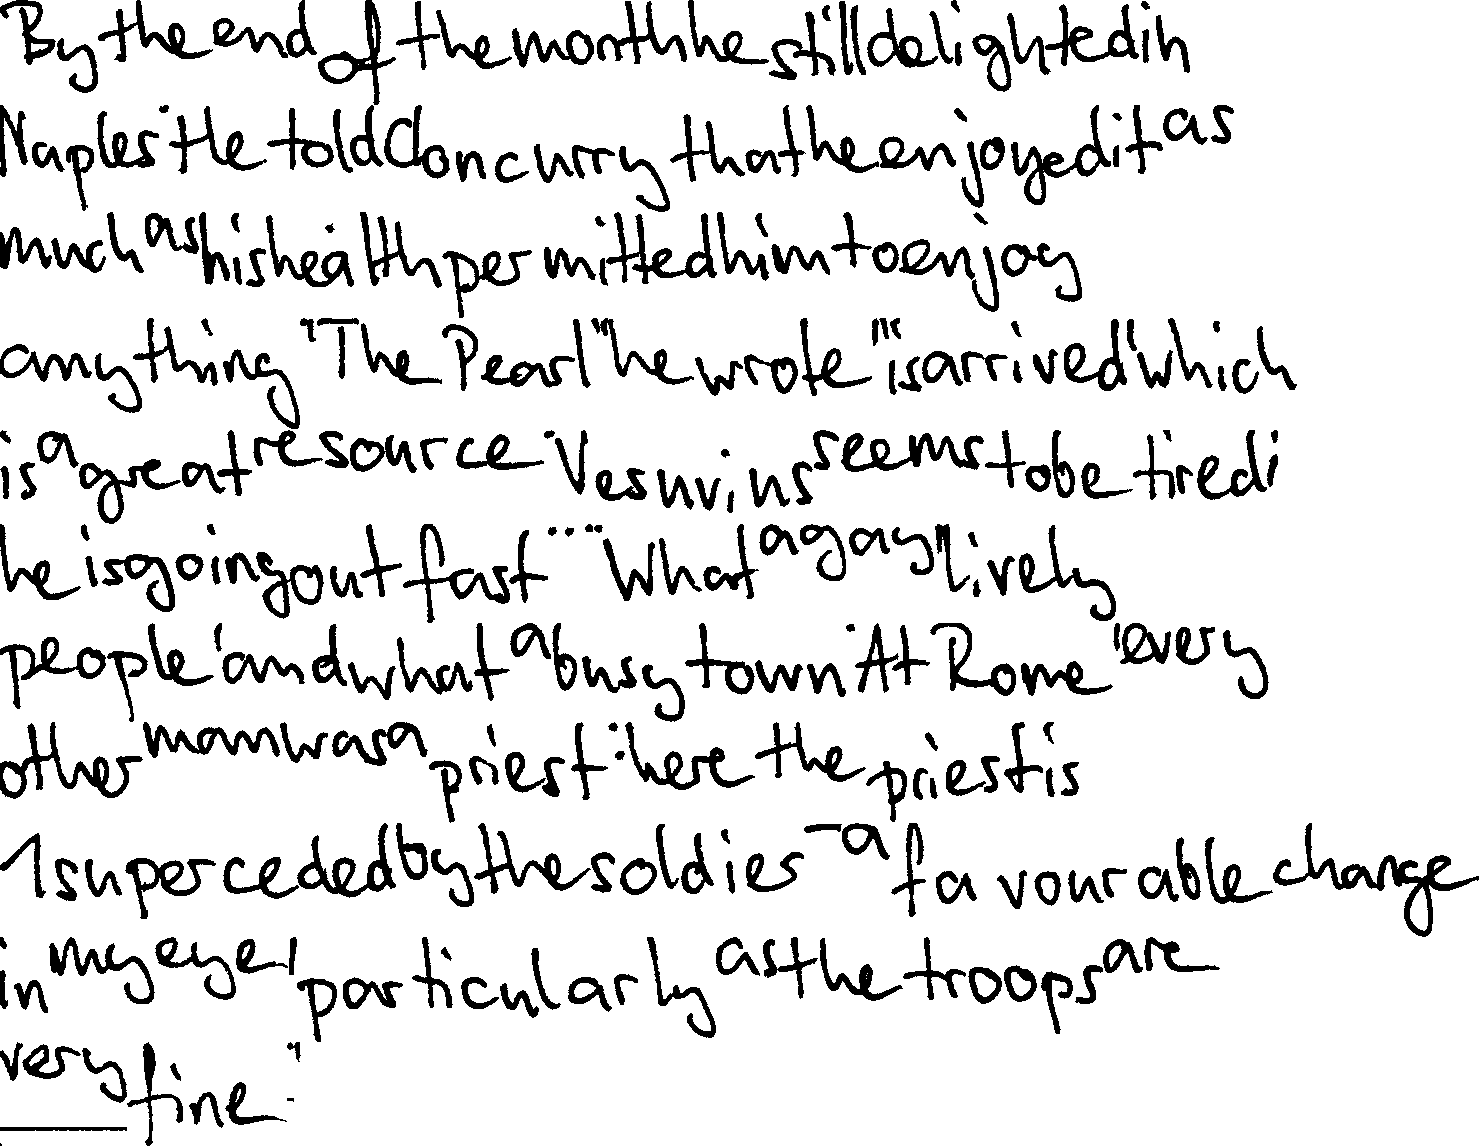 By the end of the month he still delighted in
Naples. He told Concurry that he enjoyed it as
much as his health permitted him to enjoy
anything. "The Pearl", he wrote, "is arrived, which
is a great resource. Vesuvius seems to be tired;
he is going out fast ... What a gay, lively
people, and what a busy town. At Rome, every
other man was a priest; here the priest is
1 superceded by the soldier - a favourable change
in my eye, particularly as the troops are
very fine."